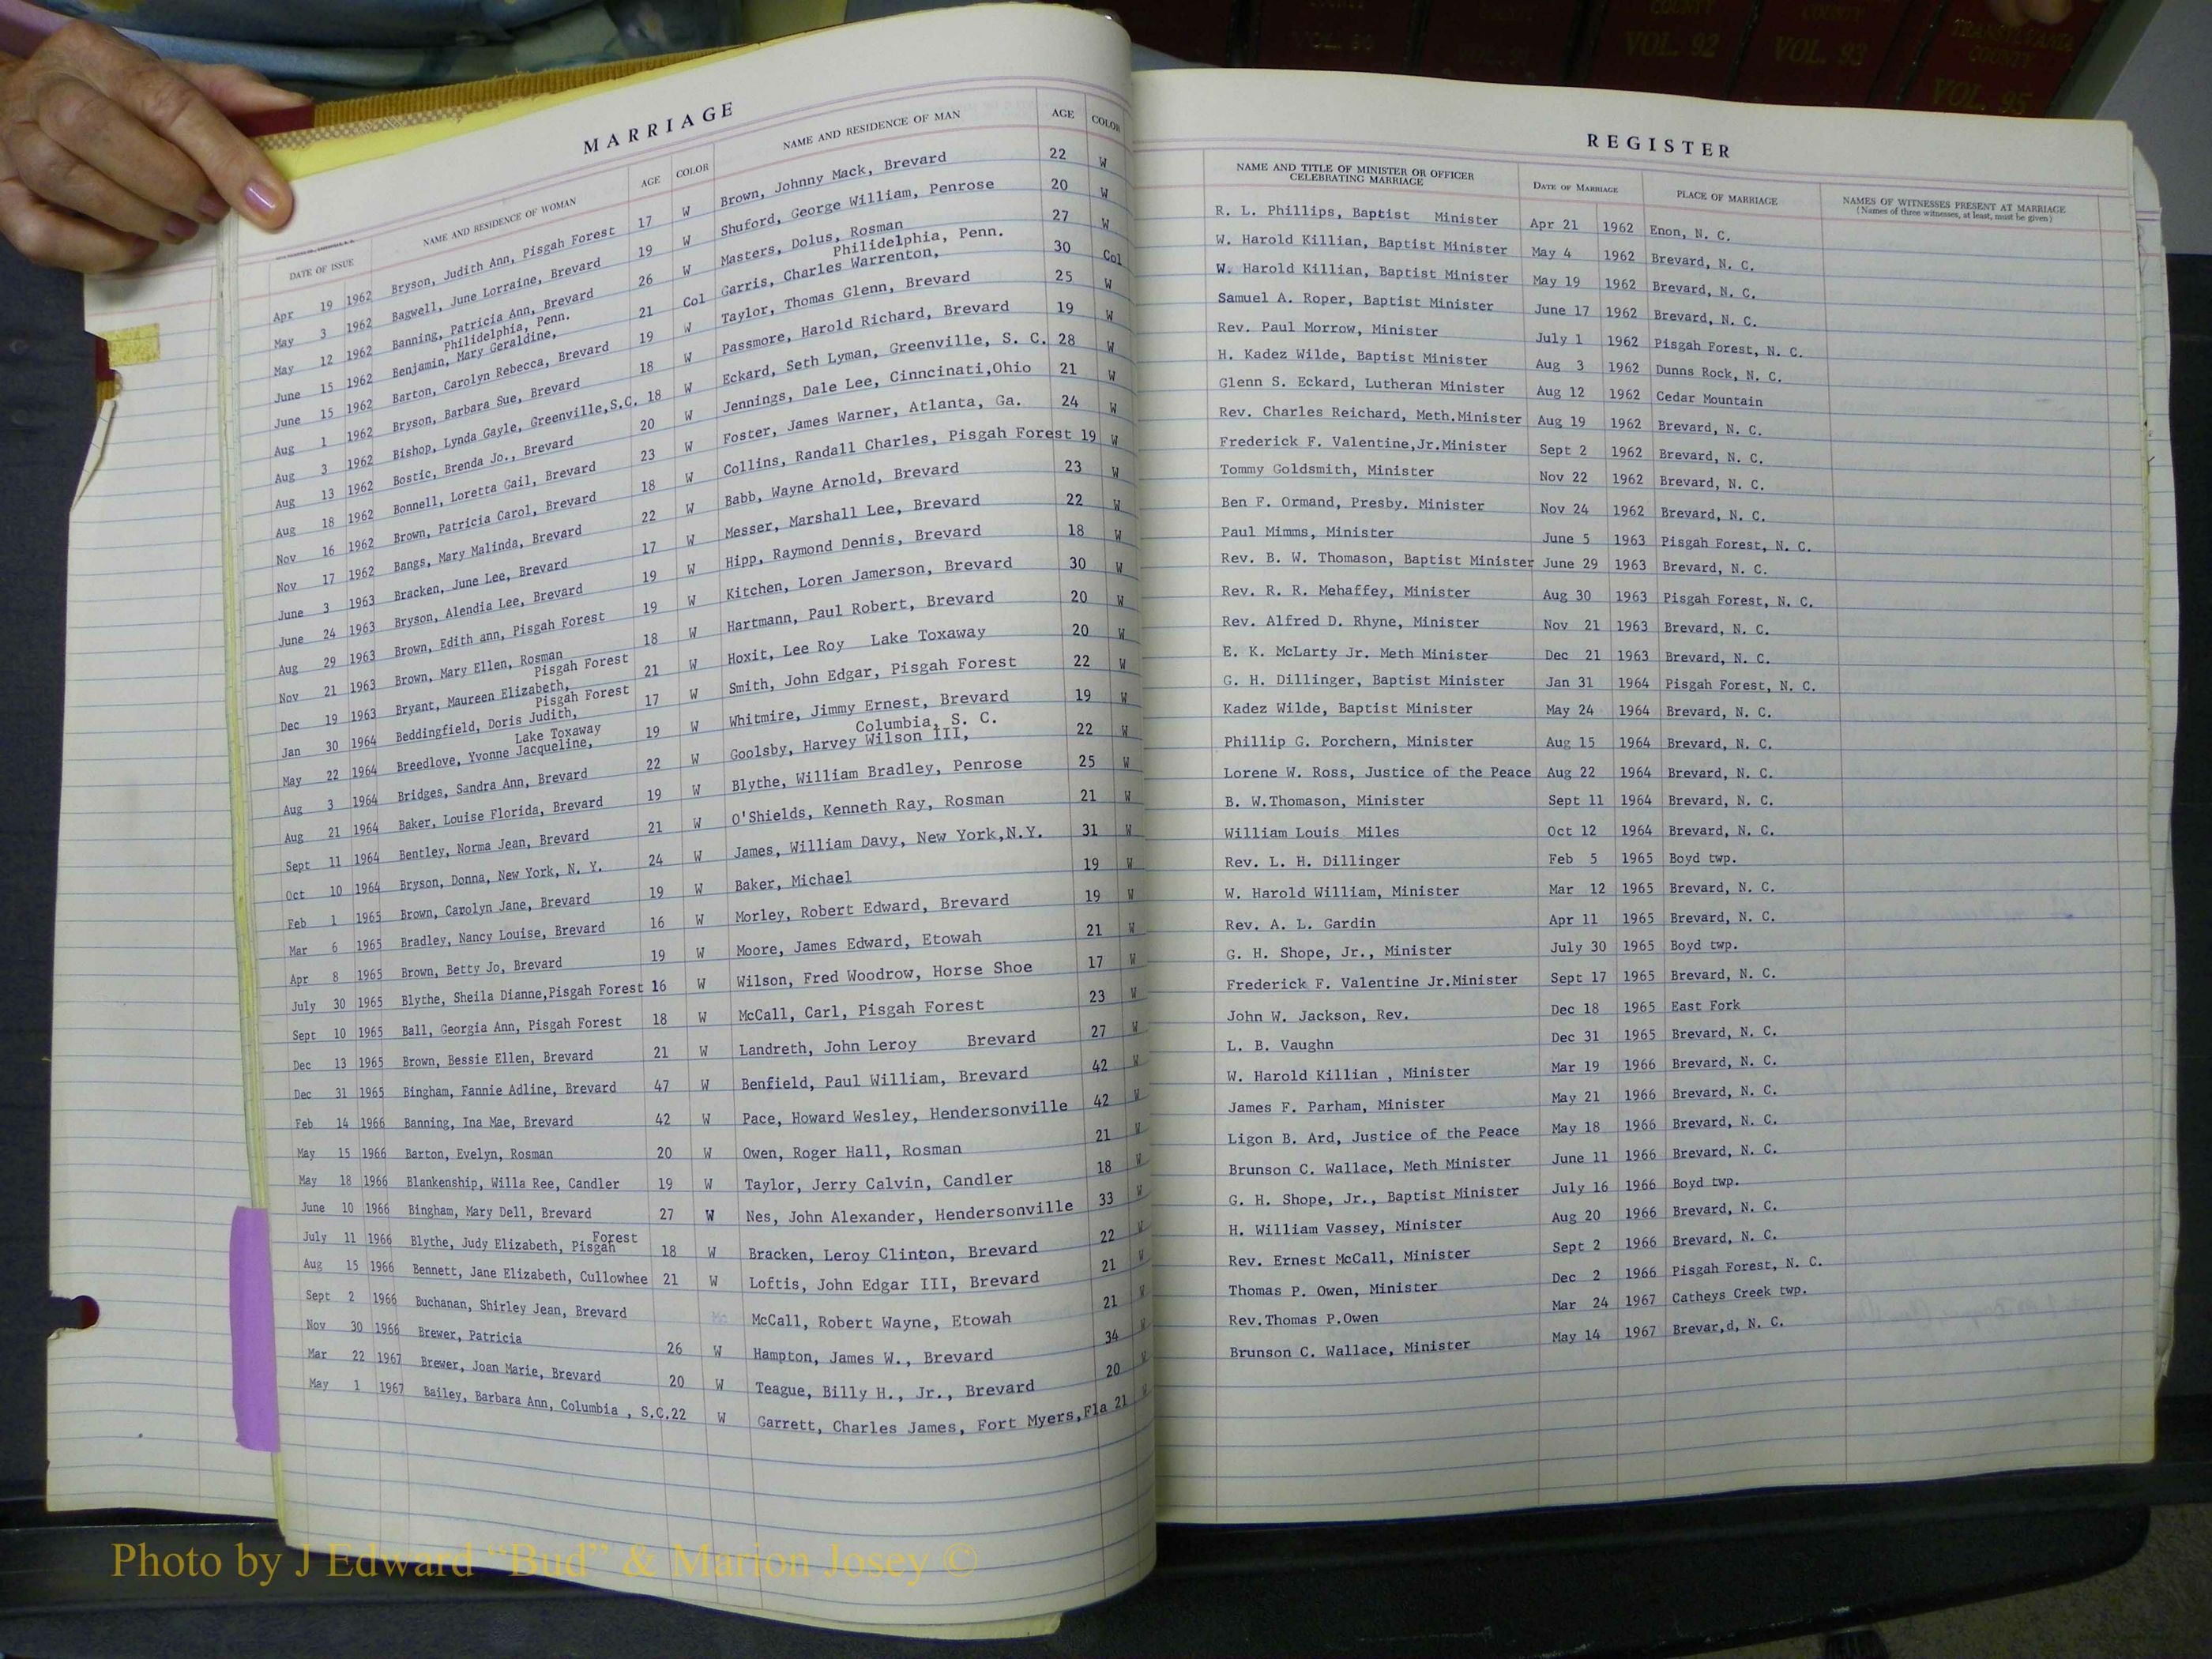 COUNTY
VOL. 92
COUNTY
VOL. 93
TRANSYLVANIA
COUNTY
VOL. 95
MARRIAGE
DATE OF ISSUE NAME AND RESIDENCE OF WOMAN AGE COLOR NAME AND RESIDENCE OF MAN AGE COLOR
Apr 19 1962 Bryson, Judith Ann, Pisgah Forest 17 W Brown, Johnny Mack, Brevard 22 W
May 3 1962 Bagwell, June Lorraine, Brevard 19 W Shuford, George William, Penrose 20 W
May 12 1962 Banning, Patricia Ann, Brevard 26 W Masters, Dolus, Rosman 27 W
Philidelphia, Penn. Philidelphia, Penn.
June 15 1962 Benjamin, Mary Geraldine, 21 Col Garris, Charles Warrenton, 30 Col
June 15 1962 Barton, Carolyn Rebecca, Brevard 19 W Taylor, Thomas Glenn, Brevard 25 W
Aug 1 1962 Bryson, Barbara Sue, Brevard 18 W Passmore, Harold Richard, Brevard 19 W
Aug 3 1962 Bishop, Lynda Gayle, Greenville,S.C. 18 W Eckard, Seth Lyman, Greenville, S. C. 28 W
Aug 13 1962 Bostic, Brenda Jo., Brevard 20 W Jennings, Dale Lee, Cinncinati,Ohio 21 W
Aug 18 1962 Bonnell, Loretta Gail, Brevard 23 W Foster, James Warner, Atlanta, Ga. 24 W
Nov 16 1962 Brown, Patricia Carol, Brevard 18 W Collins, Randall Charles, Pisgah Forest 19 W
Nov 17 1962 Bangs, Mary Malinda, Brevard 22 W Babb, Wayne Arnold, Brevard 23 W
June 3 1963 Bracken, June Lee, Brevard 17 W Messer, Marshall Lee, Brevard 22 W
June 24 1963 Bryson, Alendia Lee, Brevard 19 W Hipp, Raymond Dennis, Brevard 18 W
Aug 29 1963 Brown, Edith ann, Pisgah Forest 19 W Kitchen, Loren Jamerson, Brevard 30 W
Nov 21 1963 Brown, Mary Ellen, Rosman 18 W Hartmann, Paul Robert, Brevard 20 W
Pisgah Forest
Dec 19 1963 Bryant, Maureen Elizabeth, 21 W Hoxit, Lee Roy Lake Toxaway 20 W
Pisgah Forest
Jan 30 1964 Beddingfield, Doris Judith, 17 W Smith, John Edgar, Pisgah Forest 22 W
Lake Toxaway
May 22 1964 Breedlove, Yvonne Jacqueline, 19 W Whitmire, Jimmy Ernest, Brevard 19 W
Columbia, S. C.
Aug 3 1964 Bridges, Sandra Ann, Brevard 22 W Goolsby, Harvey Wilson III, 22 W
Aug 21 1964 Baker, Louise Florida, Brevard 19 W Blythe, William Bradley, Penrose 25 W
Sept 11 1964 Bentley, Norma Jean, Brevard 21 W O'Shields, Kenneth Ray, Rosman 21 W
Oct 10 1964 Bryson, Donna, New York, N. Y. 24 W James, William Davy, New York,N.Y. 31 W
Feb 1 1965 Brown, Carolyn Jane, Brevard 19 W Baker, Michael 19 W
Mar 6 1965 Bradley, Nancy Louise, Brevard 16 W Morley, Robert Edward, Brevard 19 W
Apr 8 1965 Brown, Betty Jo, Brevard 19 W Moore, James Edward, Etowah 21 W
July 30 1965 Blythe, Sheila Dianne,Pisgah Forest 16 W Wilson, Fred Woodrow, Horse Shoe 17 W
Sept 10 1965 Ball, Georgia Ann, Pisgah Forest 18 W McCall, Carl, Pisgah Forest 23 W
Dec 13 1965 Brown, Bessie Ellen, Brevard 21 W Landreth, John Leroy Brevard 27 W
Dec 31 1965 Bingham, Fannie Adline, Brevard 47 W Benfield, Paul William, Brevard 42 W
Feb 14 1966 Banning, Ina Mae, Brevard 42 W Pace, Howard Wesley, Hendersonville 42 W
May 15 1966 Barton, Evelyn, Rosman 20 W Owen, Roger Hall, Rosman 21 W
May 18 1966 Blankenship, Willa Ree, Candler 19 W Taylor, Jerry Calvin, Candler 18 W
June 10 1966 Bingham, Mary Dell, Brevard 27 W Nes, John Alexander, Hendersonville 33 W
Forest
July 11 1966 Blythe, Judy Elizabeth, Pisgah 18 W Bracken, Leroy Clinton, Brevard 22 W
Aug 15 1966 Bennett, Jane Elizabeth, Cullowhee 21 W Loftis, John Edgar III, Brevard 21 W
Sept 2 1966 Buchanan, Shirley Jean, Brevard McCall, Robert Wayne, Etowah 21 W
Nov 30 1966 Brewer, Patricia 26 W Hampton, James W., Brevard 34 W
Mar 22 1967 Brewer, Joan Marie, Brevard 20 W Teague, Billy H., Jr., Brevard 20 W
May 1 1967 Bailey, Barbara Ann, Columbia , S.C.22 W Garrett, Charles James, Fort Myers,Fla 21 W
REGISTER
NAME AND TITLE OF MINISTER OR OFFICER CELEBRATING MARRIAGE DATE OF MARRIAGE PLACE OF MARRIAGE NAMES OF WITNESSES PRESENT AT MARRIAGE
(Names of three witnesses, at least, must be given)
R. L. Phillips, Baptist Minister Apr 21 1962 Enon, N. C.
W. Harold Killian, Baptist Minister May 4 1962 Brevard, N. C.
W. Harold Killian, Baptist Minister May 19 1962 Brevard, N. C.
Samuel A. Roper, Baptist Minister June 17 1962 Brevard, N. C.
Rev. Paul Morrow, Minister July 1 1962 Pisgah Forest, N. C.
H. Kadez Wilde, Baptist Minister Aug 3 1962 Dunns Rock, N. C.
Glenn S. Eckard, Lutheran Minister Aug 12 1962 Cedar Mountain
Rev. Charles Reichard, Meth.Minister Aug 19 1962 Brevard, N. C.
Frederick F. Valentine,Jr.Minister Sept 2 1962 Brevard, N. C.
Tommy Goldsmith, Minister Nov 22 1962 Brevard, N. C.
Ben F. Ormand, Presby. Minister Nov 24 1962 Brevard, N. C.
Paul Mimms, Minister June 5 1963 Pisgah Forest, N. C.
Rev. B. W. Thomason, Baptist Minister June 29 1963 Brevard, N. C.
Rev. R. R. Mehaffey, Minister Aug 30 1963 Pisgah Forest, N. C.
Rev. Alfred D. Rhyne, Minister Nov 21 1963 Brevard, N. C.
E. K. McLarty Jr. Meth Minister Dec 21 1963 Brevard, N. C.
G. H. Dillinger, Baptist Minister Jan 31 1964 Pisgah Forest, N. C.
Kadez Wilde, Baptist Minister May 24 1964 Brevard, N. C.
Phillip G. Porchern, Minister Aug 15 1964 Brevard, N. C.
Lorene W. Ross, Justice of the Peace Aug 22 1964 Brevard, N. C.
B. W.Thomason, Minister Sept 11 1964 Brevard, N. C.
William Louis Miles Oct 12 1964 Brevard, N. C.
Rev. L. H. Dillinger Feb 5 1965 Boyd twp.
W. Harold William, Minister Mar 12 1965 Brevard, N. C.
Rev. A. L. Gardin Apr 11 1965 Brevard, N. C.
G. H. Shope, Jr., Minister July 30 1965 Boyd twp.
Frederick F. Valentine Jr.Minister Sept 17 1965 Brevard, N. C.
John W. Jackson, Rev. Dec 18 1965 East Fork
L. B. Vaughn Dec 31 1965 Brevard, N. C.
W. Harold Killian , Minister Mar 19 1966 Brevard, N. C.
James F. Parham, Minister May 21 1966 Brevard, N. C.
Ligon B. Ard, Justice of the Peace May 18 1966 Brevard, N. C.
Brunson C. Wallace, Meth Minister June 11 1966 Brevard, N. C.
G. H. Shope, Jr., Baptist Minister July 16 1966 Boyd twp.
H. William Vassey, Minister Aug 20 1966 Brevard, N. C.
Rev. Ernest McCall, Minister Sept 2 1966 Brevard, N. C.
Thomas P. Owen, Minister Dec 2 1966 Pisgah Forest, N. C.
Rev.Thomas P.Owen Mar 24 1967 Catheys Creek twp.
Brunson C. Wallace, Minister May 14 1967 Brevar,d, N. C.
Photo by J Edward “Bud” & Marion Josey ©